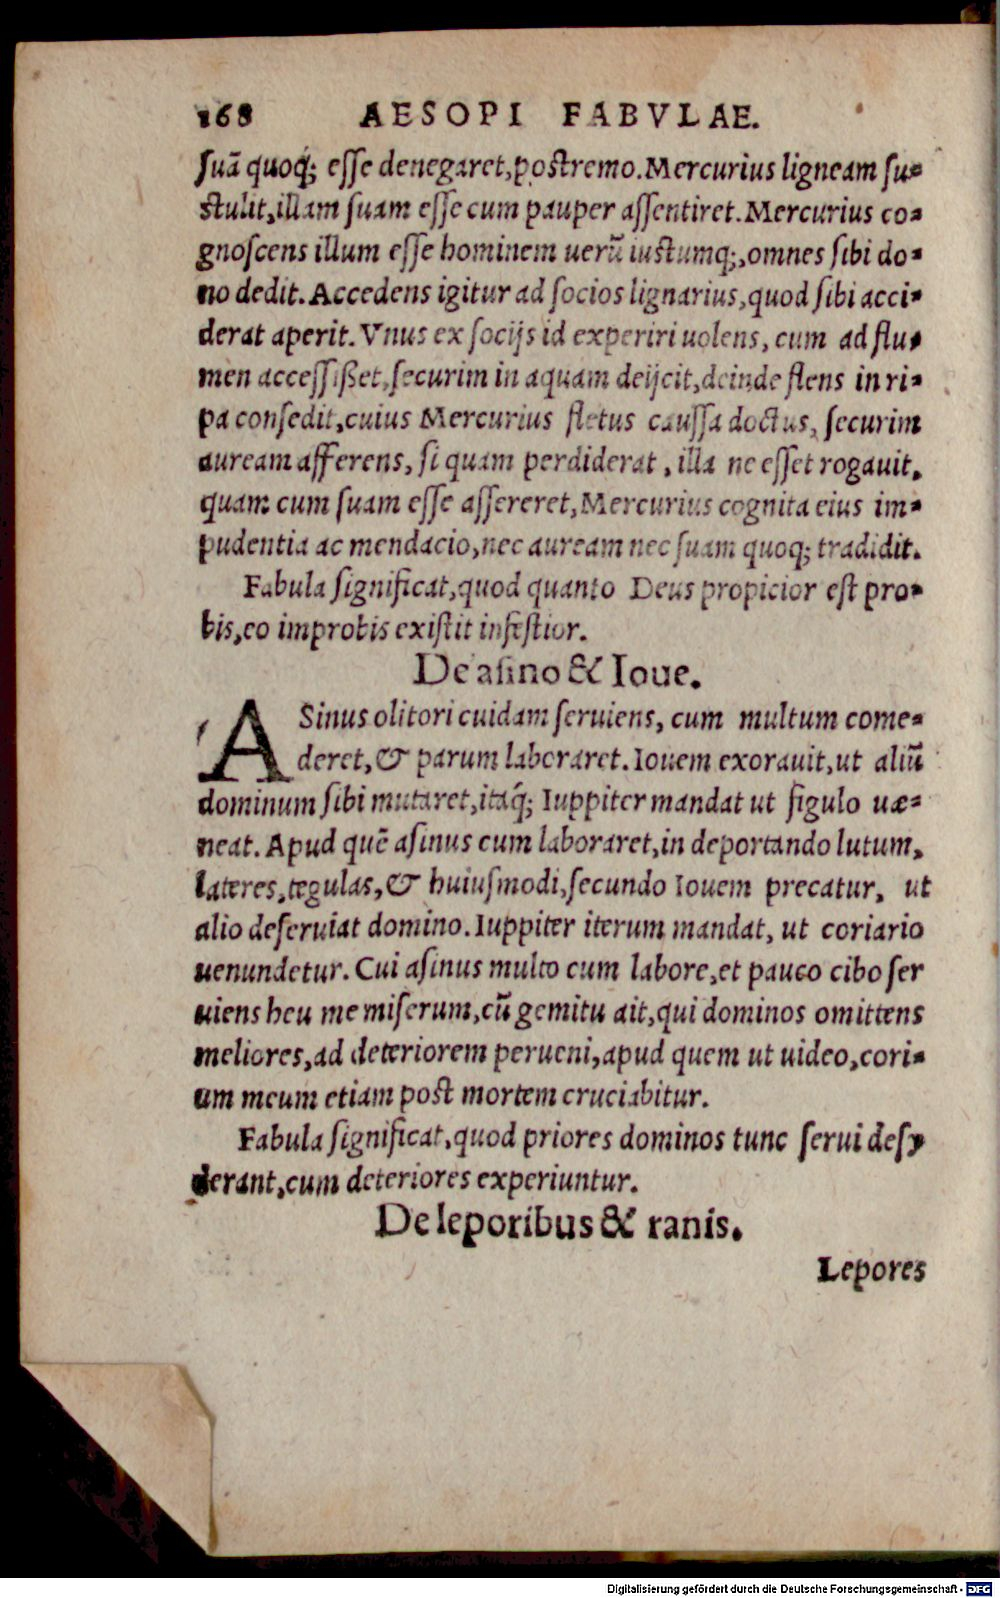 168 AESOPI FABVLAE.
ſuã quoq́; eſſe denegaret, poſtremo. Mercurius ligneam ſu-
ſtulit, illam ſuam eſſe cum pauper aſſentiret. Mercurius co-
gnoſcens illum eſſe hominem uerũ iuſtumq;, omnes ſibi do-
no dedit. Accedens igitur ad ſocios lignarius, quod ſibi acci-
derat aperit. Vnus ex ſocijs id experiri uolens, cum ad flu-
men acceſſißet, ſecurim in aquam deijcit, deinde flens in ri-
pa conſedit, cuius Mercurius fletus cauſſa doctus, ſecurim
auream afferens, ſi quam perdiderat, illa ne eſſet rogauit.
quam cum ſuam eſſe aſſereret, Mercurius cognita eius im-
pudentia ac mendacio, nec auream nec ſuam quoq; tradidit.
Fabula ſignificat, quod quanto Deus propicior eſt pro-
bis, eo improbis exiſtit infeſtior.
De aſino & Ioue.
ASinus olitori cuidam ſeruiens, cum multum come-
deret, & parum laboraret. Iouem exorauit, ut aliũ
dominum ſibi mutaret, itaq́; Iuppiter mandat ut figulo uæ-
neat. Apud quẽ aſinus cum laboraret, in deportando lutum,
lateres, tegulas, & huiuſmodi, ſecundo Iouem precatur, ut
alio deſeruiat domino. Iuppiter iterum mandat, ut coriario
uenundetur. Cui aſinus multo cum labore, et pauco cibo ſer
uiens heu me miſerum, cũ gemitu ait, qui dominos omittens
meliores, ad deteriorem perueni, apud quem ut uideo, cori-
um meum etiam poſt mortem cruciabitur.
Fabula ſignificat, quod priores dominos tunc ſerui deſy
derant, cum deteriores experiuntur.
De leporibus & ranis.
Lepores
Digitalisierung gefördert durch die Deutsche Forschungsgemeinschaft - DFG